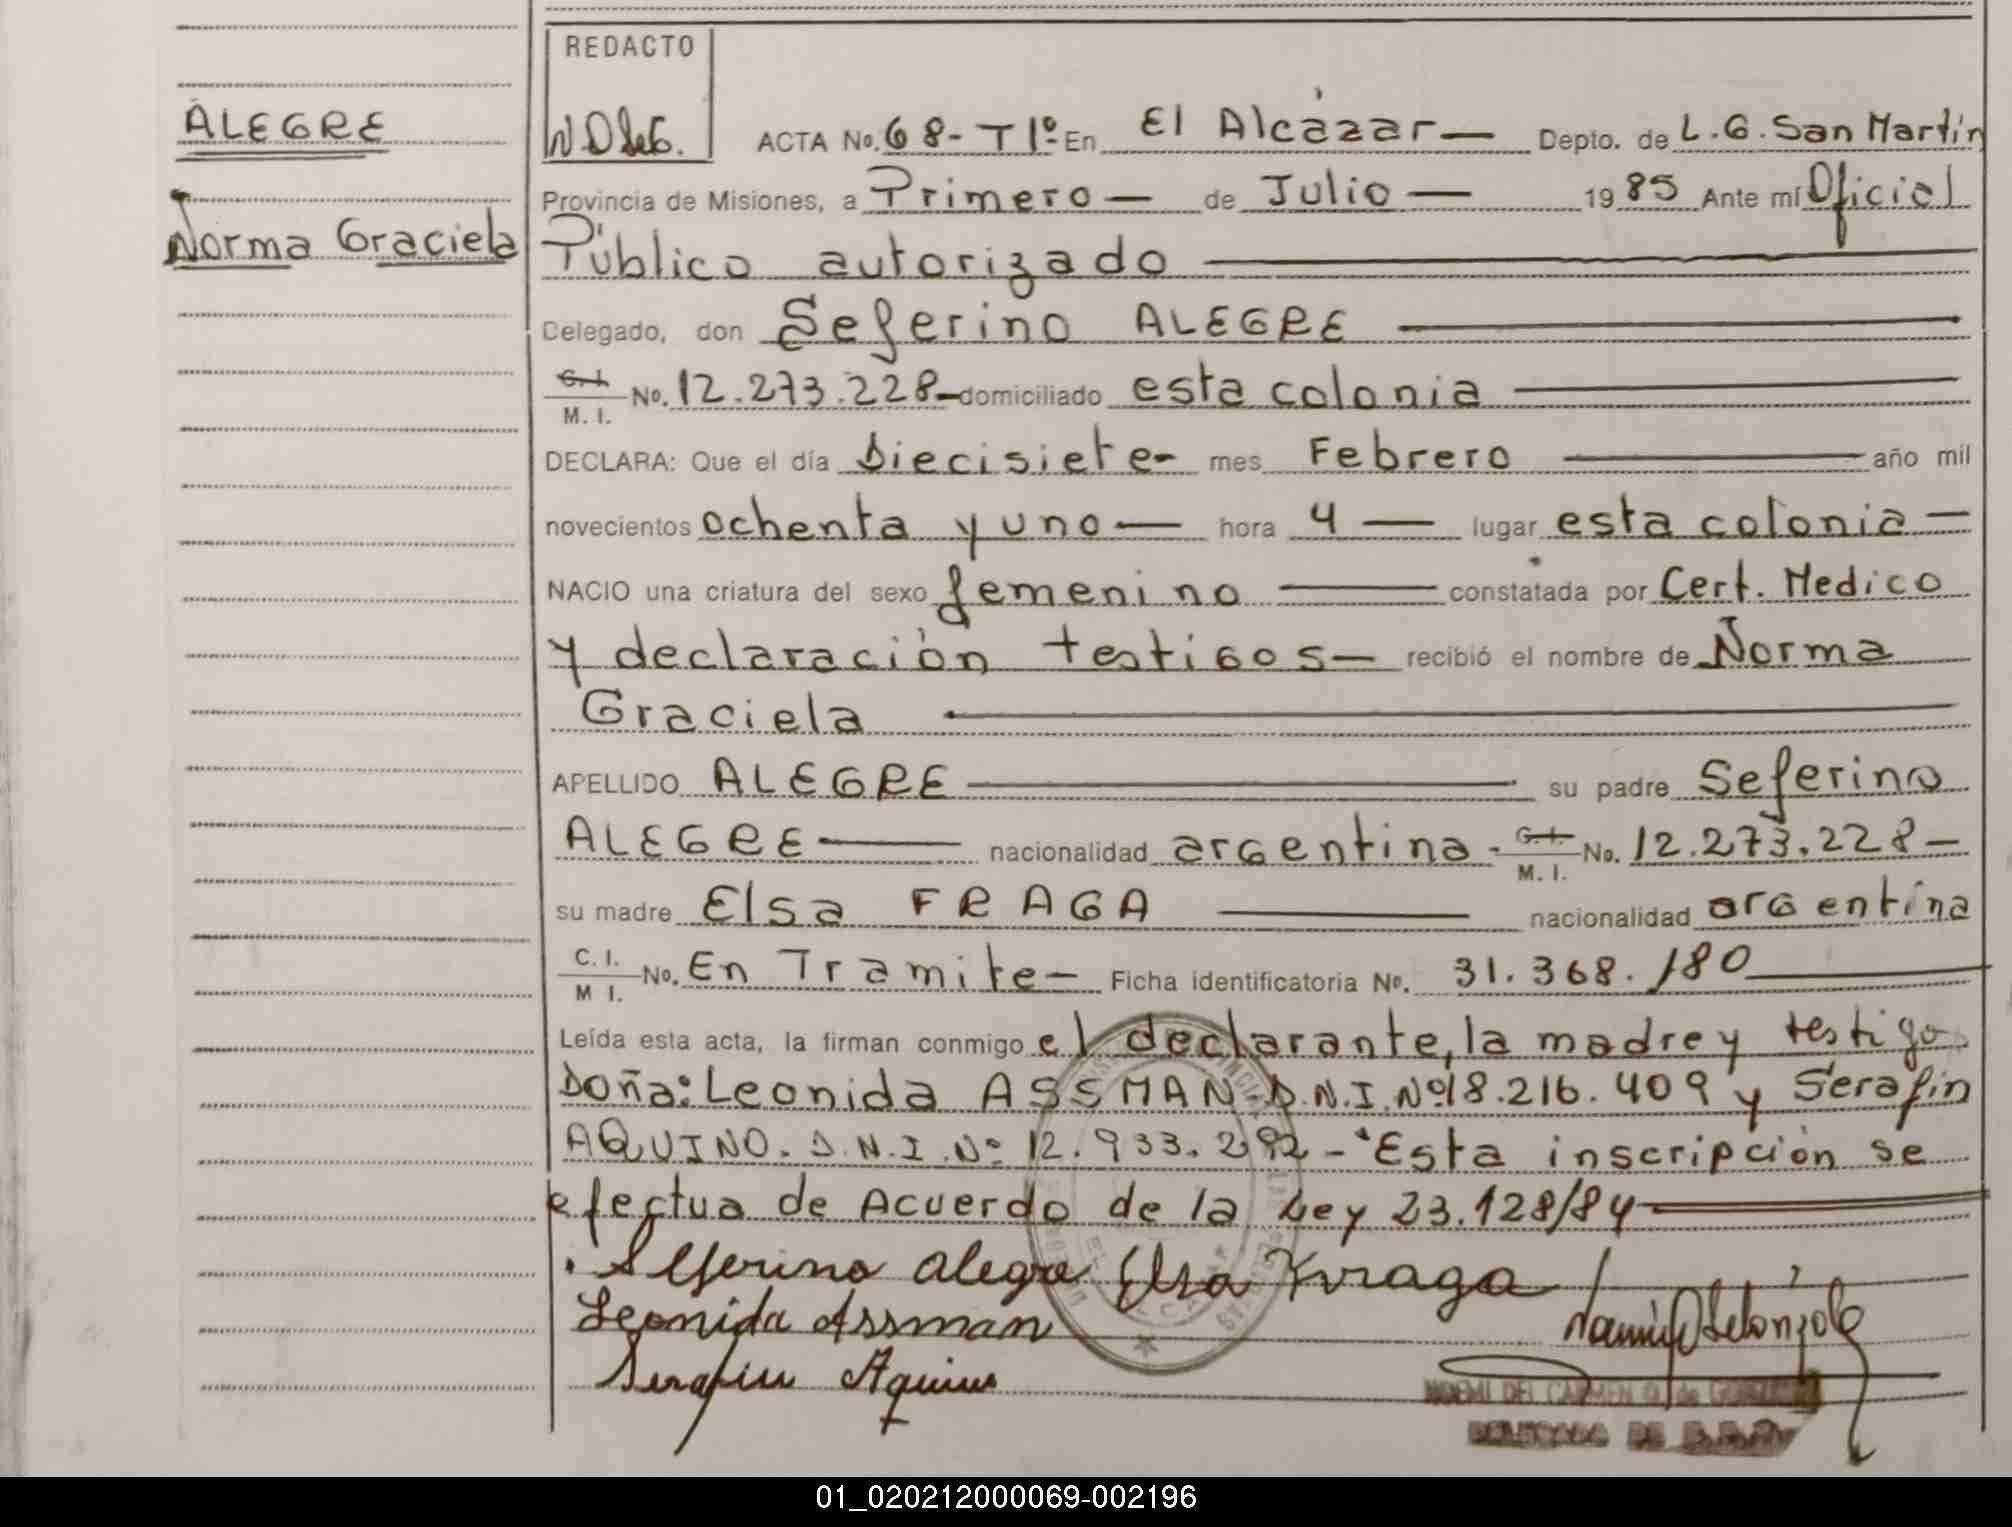 REDACTO
ALEGRE
Norma Graciela
ACTA No. 68- T1º En El Alcázar — Depto. de L.G. San Martín
Provincia de Misiones, a Primero — de Julio — 1985 Ante mí Oficial
Público autorizado
Delegado, don Seferino ALEGRE
C.I. / M.I. No. 12.273.228- domiciliado esta colonia
DECLARA: Que el día Diecisiete- mes Febrero año mil
novecientos ochenta y uno — hora 4 — lugar esta colonia —
NACIO una criatura del sexo femenino constatada por Cert. Medico
y declaración testigos — recibió el nombre de Norma
Graciela
APELLIDO ALEGRE su padre Seferino
ALEGRE nacionalidad argentina. C.I. / M.I. No. 12.273.228 —
su madre Elsa FRAGA nacionalidad argentina
C.I. / M I. No. En Tramite — Ficha identificatoria No. 31.368.180
Leída esta acta, la firman conmigo el declarante, la madre y testigo
Doña: Leonida ASSMAN. D.N.I. Nº 18.216.409 y Serafin
AQUINO. D.N.I. Nº 12.933.292 - Esta inscripción se
efectua de Acuerdo de la Ley 23.128/84
Seferino alegre Elsa Fraga
Leonida Assman
Serafin Aquino
NOEMI DEL CARMEN O. de
DELEGADA DE
01_020212000069-002196